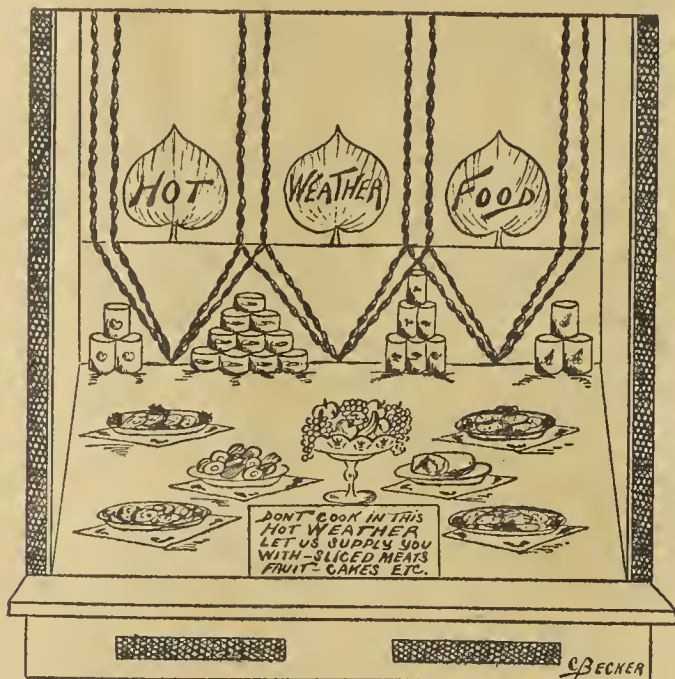 HOT WEATHER FOOD
DONT COOK IN THIS
HOT WEATHER
LET US SUPPLY YOU
WITH-SLICED MEATS
FRUIT-CAKES ETC.
C BECKER